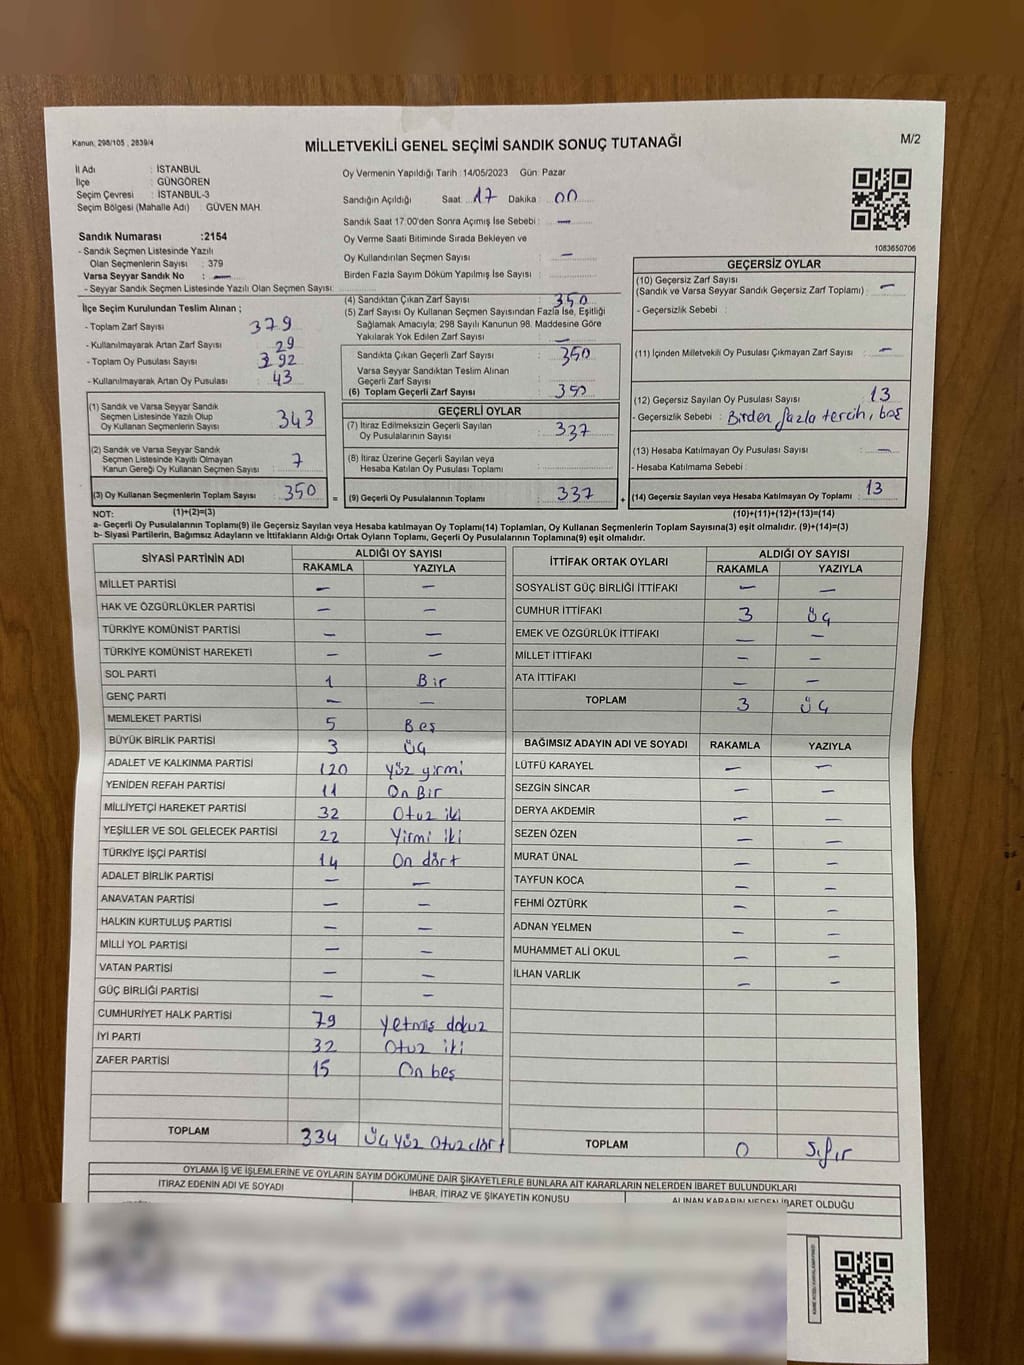 Kanun, 298/105 , 2839/4
MİLLETVEKİLİ GENEL SEÇİMİ SANDIK SONUÇ TUTANAĞI
M/2
İl Adı : İSTANBUL
İlçe : GÜNGÖREN
Seçim Çevresi : İSTANBUL-3
Seçim Bölgesi (Mahalle Adı) : GÜVEN MAH.
Sandık Numarası :2154
- Sandık Seçmen Listesinde Yazılı
Olan Seçmenlerin Sayısı : 379
Varsa Seyyar Sandık No : —
- Seyyar Sandık Seçmen Listesinde Yazılı Olan Seçmen Sayısı:
Oy Vermenin Yapıldığı Tarih :14/05/2023 Gün: Pazar
Sandığın Açıldığı Saat: 17 Dakika: 00
Sandık Saat 17:00'den Sonra Açımış İse Sebebi : —
Oy Verme Saati Bitiminde Sırada Bekleyen ve
Oy Kullandırılan Seçmen Sayısı : —
Birden Fazla Sayım Döküm Yapılmış İse Sayısı :
1083650706
İlçe Seçim Kurulundan Teslim Alınan ;
- Toplam Zarf Sayısı 379
- Kullanılmayarak Artan Zarf Sayısı 29
- Toplam Oy Pusulası Sayısı 392
- Kullanılmayarak Artan Oy Pusulası 43
(1) Sandık ve Varsa Seyyar Sandık
Seçmen Listesinde Yazılı Olup
Oy Kullanan Seçmenlerin Sayısı 343
(2) Sandık ve Varsa Seyyar Sandık
Seçmen Listesinde Kayıtlı Olmayan
Kanun Gereği Oy Kullanan Seçmen Sayısı 7
(3) Oy Kullanan Seçmenlerin Toplam Sayısı 350
(1)+(2)=(3)
(4) Sandıktan Çıkan Zarf Sayısı 350
(5) Zarf Sayısı Oy Kullanan Seçmen Sayısından Fazla İse, Eşitliği
Sağlamak Amacıyla, 298 Sayılı Kanunun 98. Maddesine Göre
Yakılarak Yok Edilen Zarf Sayısı : —
Sandıkta Çıkan Geçerli Zarf Sayısı 350
Varsa Seyyar Sandıktan Teslim Alınan
Geçerli Zarf Sayısı
(6) Toplam Geçerli Zarf Sayısı 350
GEÇERLİ OYLAR
(7) İtiraz Edilmeksizin Geçerli Sayılan
Oy Pusulalarının Sayısı 337
(8) İtiraz Üzerine Geçerli Sayılan veya
Hesaba Katılan Oy Pusulası Toplamı
= (9) Geçerli Oy Pusulalarının Toplamı 337 +
GEÇERSİZ OYLAR
(10) Geçersiz Zarf Sayısı
(Sandık ve Varsa Seyyar Sandık Geçersiz Zarf Toplamı) : —
- Geçersizlik Sebebi :
(11) İçinden Milletvekili Oy Pusulası Çıkmayan Zarf Sayısı : —
(12) Geçersiz Sayılan Oy Pusulası Sayısı : 13
- Geçersizlik Sebebi : Birden fazla tercih, boş
(13) Hesaba Katılmayan Oy Pusulası Sayısı : —
- Hesaba Katılmama Sebebi :
(14) Geçersiz Sayılan veya Hesaba Katılmayan Oy Toplamı : 13
(10)+(11)+(12)+(13)=(14)
NOT:
a- Geçerli Oy Pusulalarının Toplamı(9) ile Geçersiz Sayılan veya Hesaba katılmayan Oy Toplamı(14) Toplamları, Oy Kullanan Seçmenlerin Toplam Sayısına(3) eşit olmalıdır. (9)+(14)=(3)
b- Siyasi Partilerin, Bağımsız Adayların ve İttifakların Aldığı Ortak Oyların Toplamı, Geçerli Oy Pusulalarının Toplamına(9) eşit olmalıdır.
SİYASİ PARTİNİN ADI ALDIĞI OY SAYISI
RAKAMLA YAZIYLA
MİLLET PARTİSİ — —
HAK VE ÖZGÜRLÜKLER PARTİSİ — —
TÜRKİYE KOMÜNİST PARTİSİ — —
TÜRKİYE KOMÜNİST HAREKETİ — —
SOL PARTİ 1 Bir
GENÇ PARTİ — —
MEMLEKET PARTİSİ 5 Beş
BÜYÜK BİRLİK PARTİSİ 3 Üç
ADALET VE KALKINMA PARTİSİ 120 Yüz yirmi
YENİDEN REFAH PARTİSİ 11 On Bir
MİLLİYETÇİ HAREKET PARTİSİ 32 Otuz iki
YEŞİLLER VE SOL GELECEK PARTİSİ 22 Yirmi iki
TÜRKİYE İŞÇİ PARTİSİ 14 On dört
ADALET BİRLİK PARTİSİ — —
ANAVATAN PARTİSİ — —
HALKIN KURTULUŞ PARTİSİ — —
MİLLİ YOL PARTİSİ — —
VATAN PARTİSİ — —
GÜÇ BİRLİĞİ PARTİSİ — —
CUMHURİYET HALK PARTİSİ 79 yetmiş dokuz
İYİ PARTİ 32 Otuz iki
ZAFER PARTİSİ 15 On beş
TOPLAM 334 Üç Yüz Otuz dört
İTTİFAK ORTAK OYLARI ALDIĞI OY SAYISI
RAKAMLA YAZIYLA
SOSYALİST GÜÇ BİRLİĞİ İTTİFAKI — —
CUMHUR İTTİFAKI 3 Üç
EMEK VE ÖZGÜRLÜK İTTİFAKI — —
MİLLET İTTİFAKI — —
ATA İTTİFAKI — —
TOPLAM 3 Üç
BAĞIMSIZ ADAYIN ADI VE SOYADI RAKAMLA YAZIYLA
LÜTFÜ KARAYEL — —
SEZGİN SİNCAR — —
DERYA AKDEMİR — —
SEZEN ÖZEN — —
MURAT ÜNAL — —
TAYFUN KOCA — —
FEHMİ ÖZTÜRK — —
ADNAN YELMEN — —
MUHAMMET ALİ OKUL — —
İLHAN VARLIK — —
TOPLAM 0 Sıfır
OYLAMA İŞ VE İŞLEMLERİNE VE OYLARIN SAYIM DÖKÜMÜNE DAİR ŞİKAYETLERLE BUNLARA AİT KARARLARIN NELERDEN İBARET BULUNDUKLARI
İTİRAZ EDENİN ADI VE SOYADI İHBAR, İTİRAZ VE ŞİKAYETİN KONUSU ALINAN KARARIN NEDEN İBARET OLDUĞU